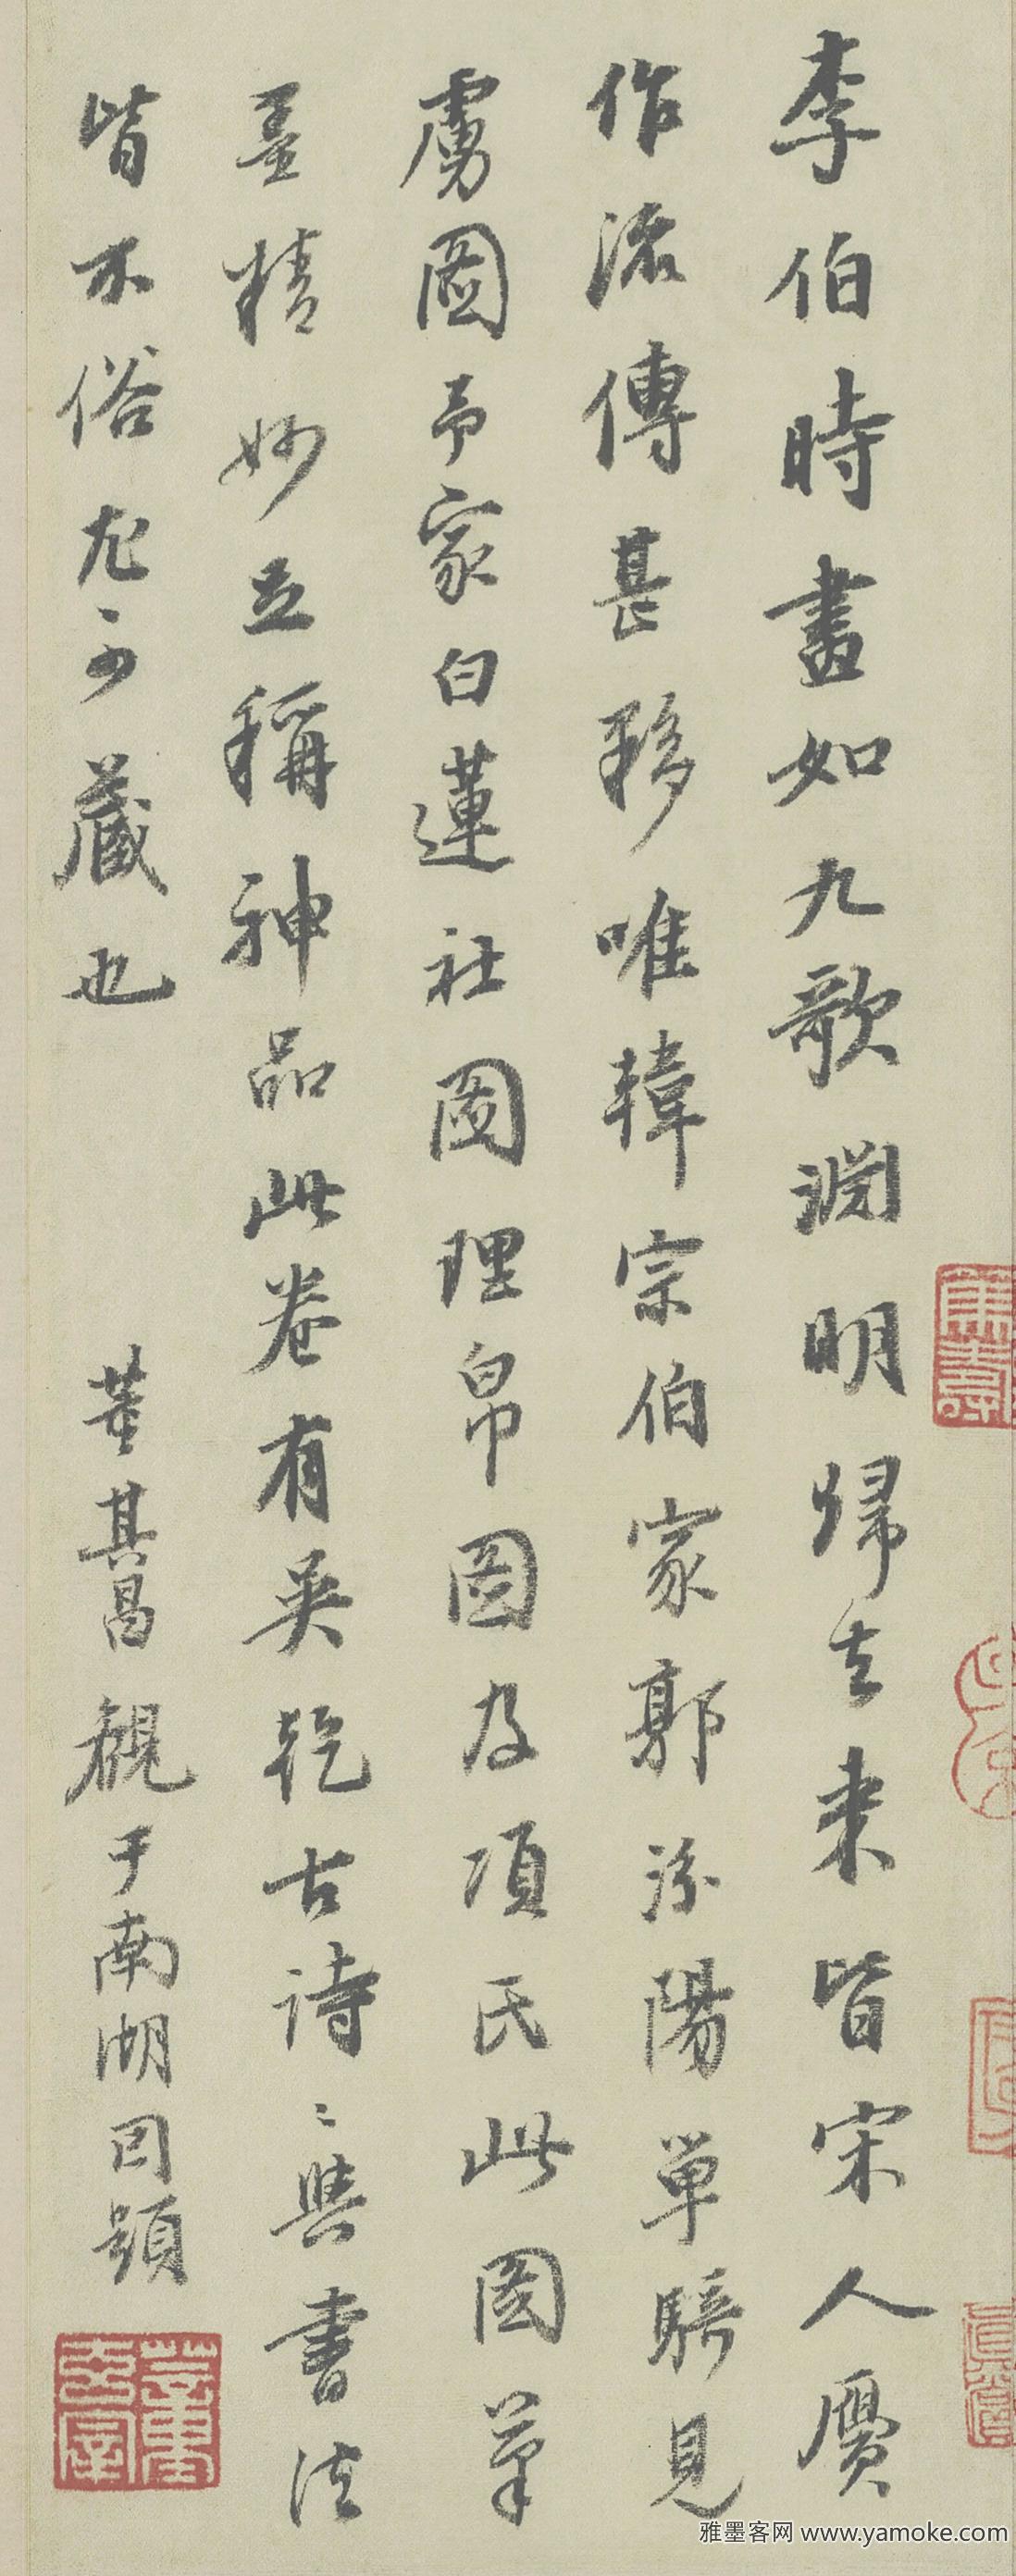 李伯時畫如九歌淵明歸去来皆宋人贗
作流傳甚夥唯韓宗伯家郭汾陽單騎見
虜圖予家白蓮社圖理帛圖及項氏此圖筆
墨精妙立稱神品此卷有吴説古詩〻與書法
皆不俗尤可藏也
董其昌觀于南湖因題
雅墨客网 www.yamoke.com